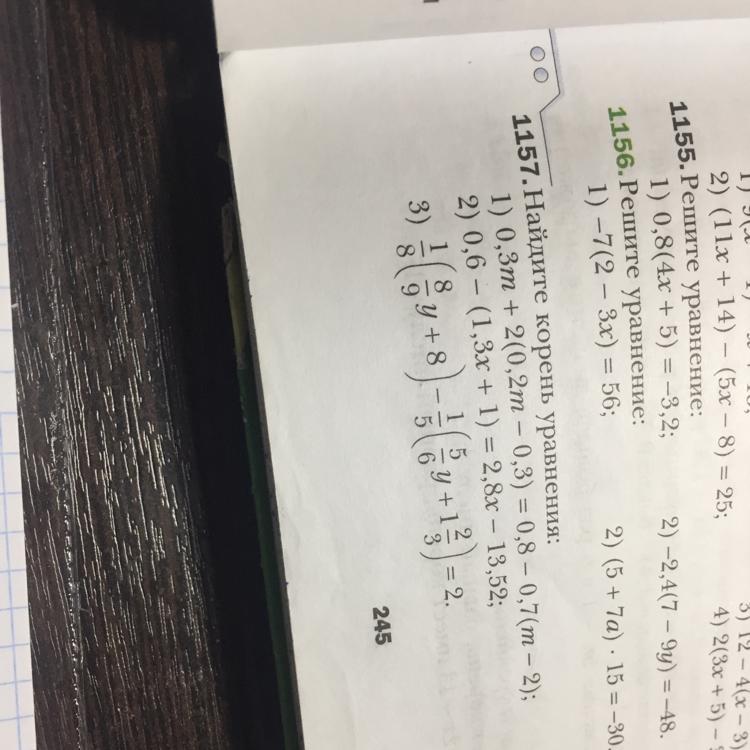 2) (11x + 14) − (5x − 8) = 25;
1155. Решите уравнение:
1) 0,8(4x + 5) = −3,2; 2) −2,4(7 − 9y) = −48.
1156. Решите уравнение:
1) −7(2 − 3x) = 56; 2) (5 + 7a) · 15 = −30.
1157. Найдите корень уравнения:
1) 0,3m + 2(0,2m − 0,3) = 0,8 − 0,7(m − 2);
2) 0,6 − (1,3x + 1) = 2,8x − 13,52;
3) 1/8(8/9 y + 8) − 1/5(5/6 y + 1 2/3) = 2.
245